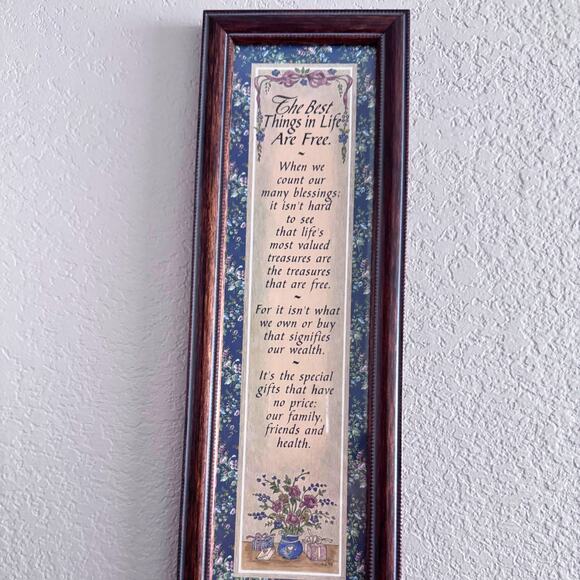 The Best
Things in Life
Are Free.
~
When we
count our
many blessings;
it isn't hard
to see
that life's
most valued
treasures are
the treasures
that are free.
~
For it isn't what
we own or buy
that signifies
our wealth.
~
It's the special
gifts that have
no price;
our family,
friends and
health.